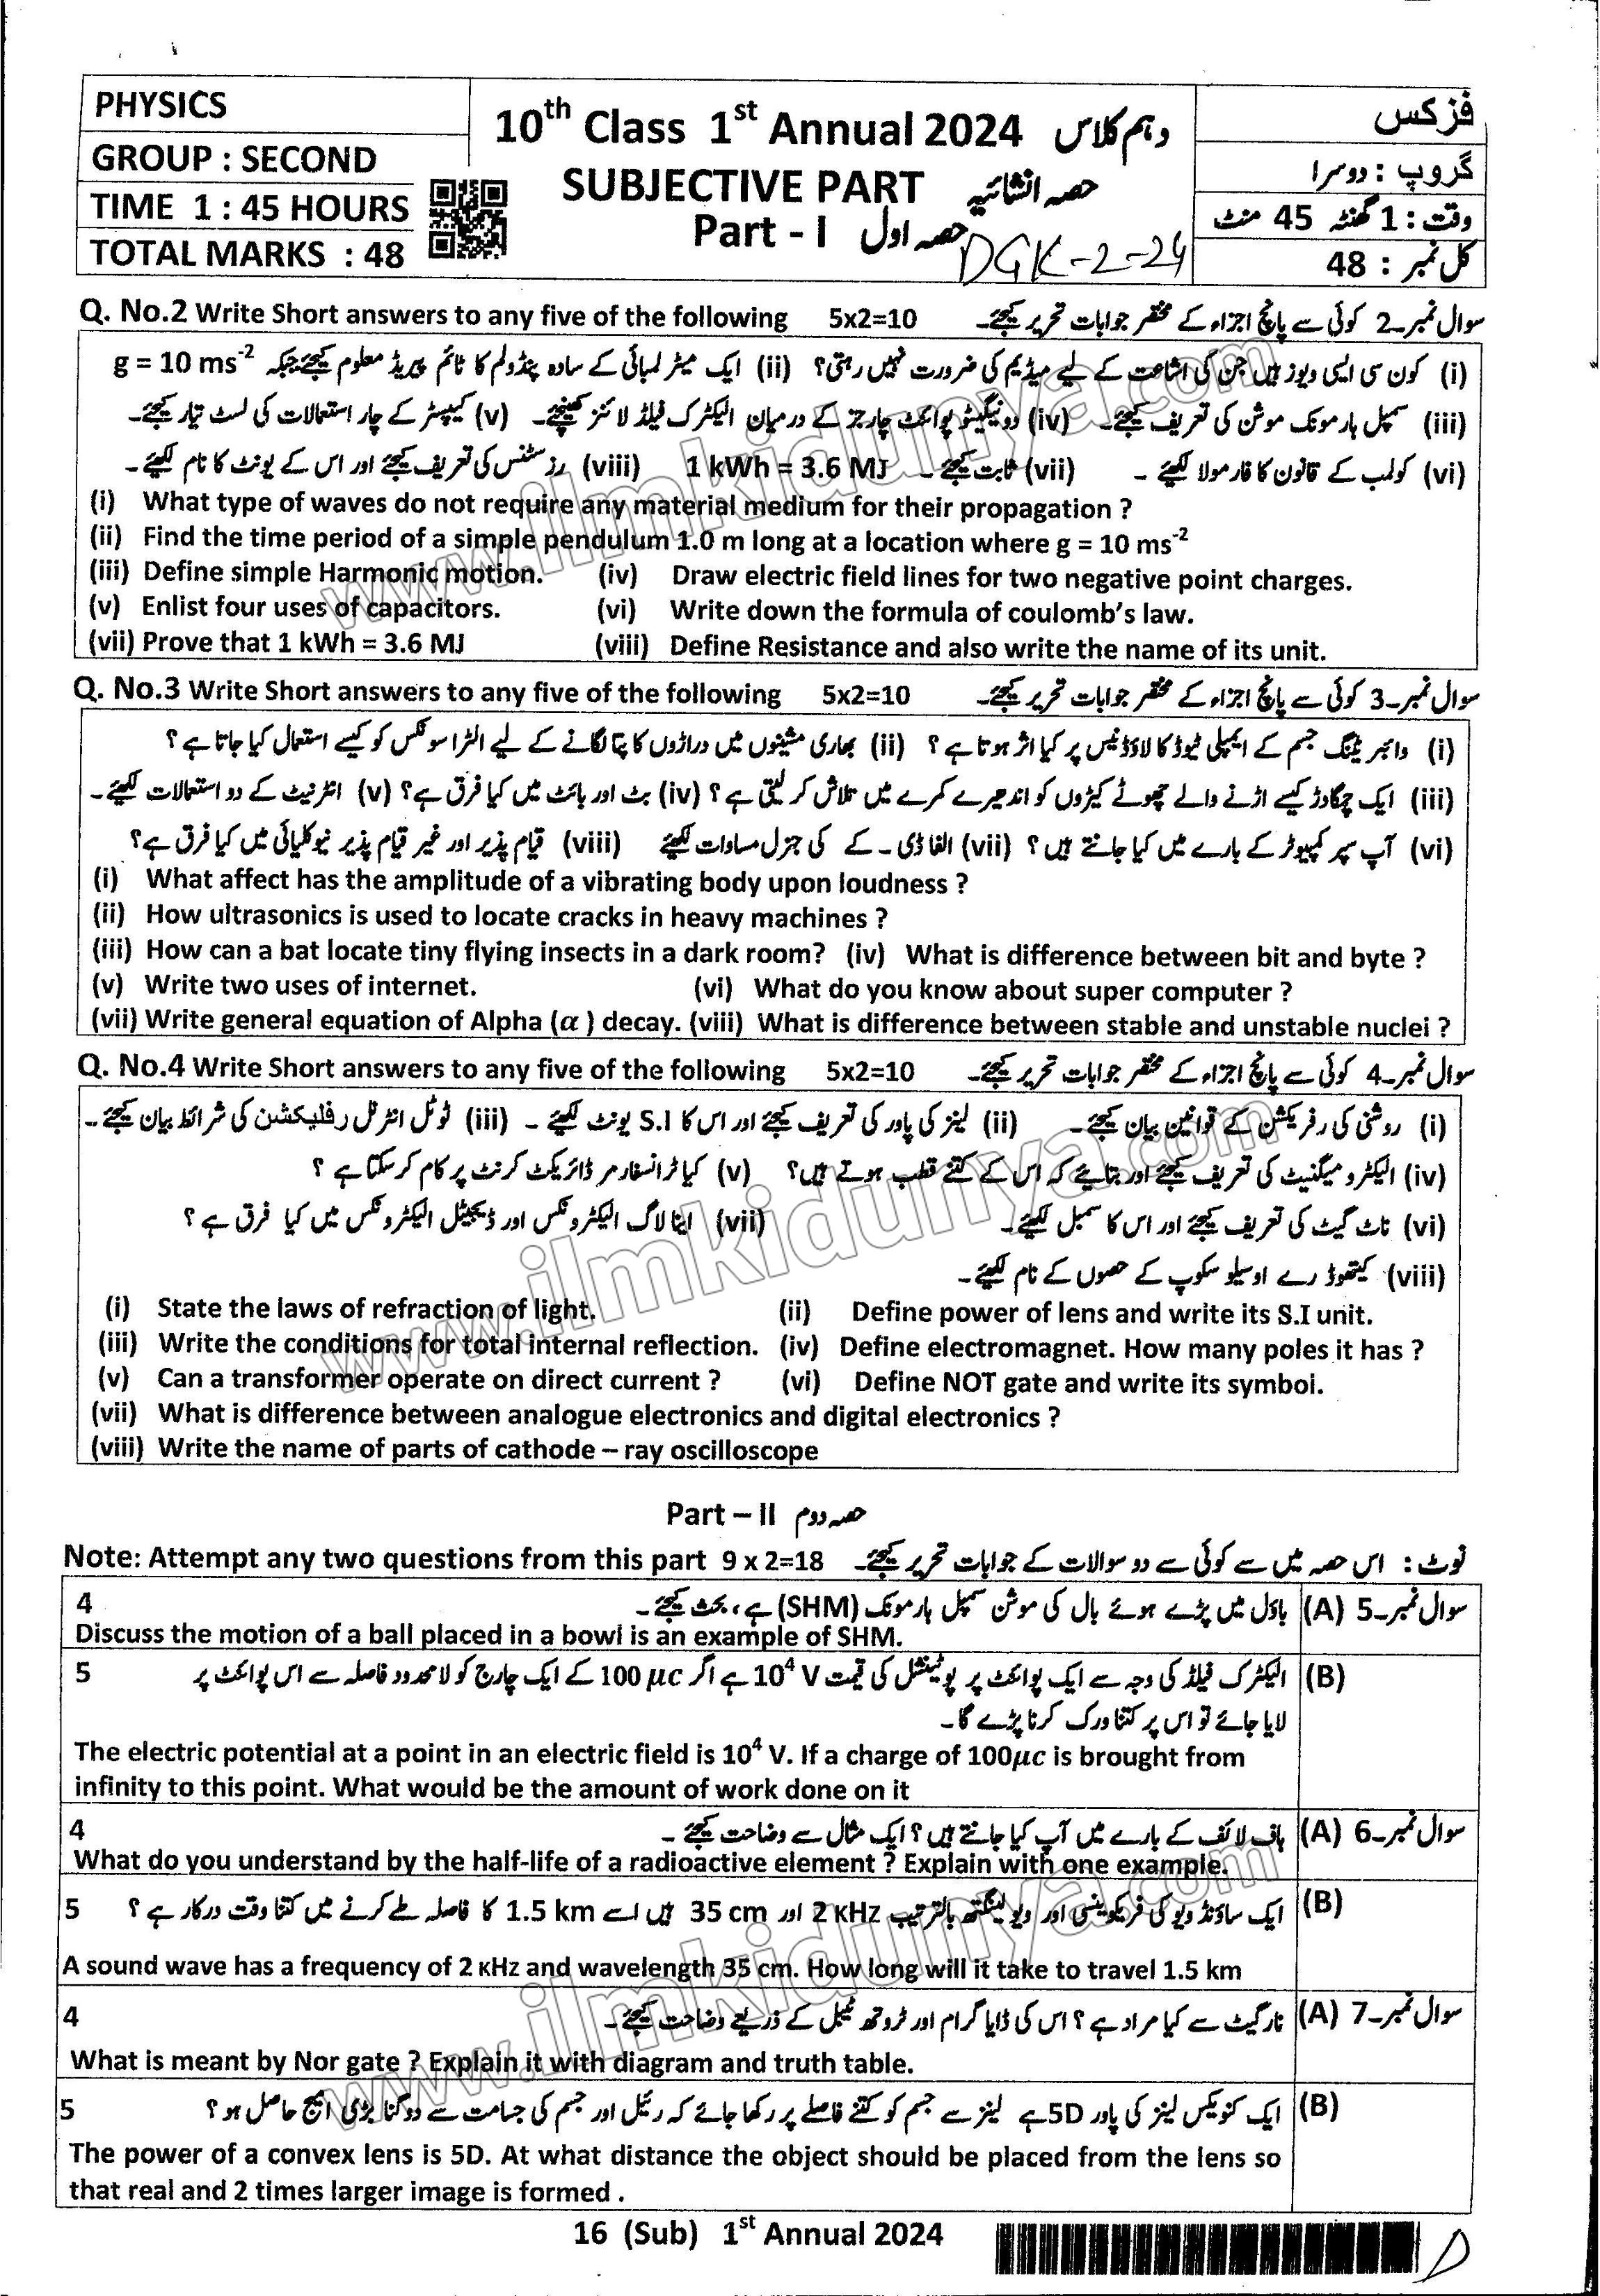 PHYSICS
GROUP : SECOND
TIME 1 : 45 HOURS
TOTAL MARKS : 48
10th Class 1st Annual 2024 دہم کلاس
SUBJECTIVE PART حصہ انشائیہ
Part - I حصہ اول
DGK-2-24
فزکس
گروپ : دوسرا
وقت : 1 گھنٹہ 45 منٹ
کل نمبر : 48
Q. No.2 Write Short answers to any five of the following 5x2=10 سوال نمبر۔2 کوئی سے پانچ اجزاء کے مختصر جوابات تحریر کیجئے۔
(i) کون سی ایسی ویوز ہیں جن کی اشاعت کے لیے میڈیم کی ضرورت نہیں رہتی؟ (ii) ایک میٹر لمبائی کے سادہ پنڈولم کا ٹائم پیریڈ معلوم کیجئے جبکہ g = 10 ms-2
(iii) سمپل ہارمونک موشن کی تعریف کیجئے۔ (iv) دو نیگیٹو پوائنٹ چارجز کے درمیان الیکٹرک فیلڈ لائنز کھینچئے۔ (v) کپیسٹر کے چار استعمالات کی لسٹ تیار کیجئے۔
(vi) کولمب کے قانون کا فارمولا لکھیئے ۔ (vii) ثابت کیجئے۔ 1 kWh = 3.6 MJ (viii) رزسٹنس کی تعریف کیجئے اور اس کے یونٹ کا نام لکھیئے۔
(i) What type of waves do not require any material medium for their propagation ?
(ii) Find the time period of a simple pendulum 1.0 m long at a location where g = 10 ms-2
(iii) Define simple Harmonic motion. (iv) Draw electric field lines for two negative point charges.
(v) Enlist four uses of capacitors. (vi) Write down the formula of coulomb's law.
(vii) Prove that 1 kWh = 3.6 MJ (viii) Define Resistance and also write the name of its unit.
Q. No.3 Write Short answers to any five of the following 5x2=10 سوال نمبر۔3 کوئی سے پانچ اجزاء کے مختصر جوابات تحریر کیجئے۔
(i) وائبریٹنگ جسم کے ایمپلی ٹیوڈ کا لاؤڈنیس پر کیا اثر ہوتا ہے ؟ (ii) بھاری مشینوں میں دراڑوں کا پتا لگانے کے لیے الٹرا سونکس کو کیسے استعمال کیا جاتا ہے ؟
(iii) ایک چمگادڑ کیسے اڑنے والے چھوٹے کیڑوں کو اندھیرے کمرے میں تلاش کر لیتی ہے ؟ (iv) بٹ اور بائٹ میں کیا فرق ہے؟ (v) انٹرنیٹ کے دو استعمالات لکھیئے۔
(vi) آپ سپر کمپیوٹر کے بارے میں کیا جانتے ہیں ؟ (vii) الفا ڈی۔ کے کی جنرل مساوات لکھیئے (viii) قیام پذیر اور غیر قیام پذیر نیوکلیائی میں کیا فرق ہے؟
(i) What affect has the amplitude of a vibrating body upon loudness ?
(ii) How ultrasonics is used to locate cracks in heavy machines ?
(iii) How can a bat locate tiny flying insects in a dark room? (iv) What is difference between bit and byte ?
(v) Write two uses of internet. (vi) What do you know about super computer ?
(vii) Write general equation of Alpha (α ) decay. (viii) What is difference between stable and unstable nuclei ?
Q. No.4 Write Short answers to any five of the following 5x2=10 سوال نمبر۔4 کوئی سے پانچ اجزاء کے مختصر جوابات تحریر کیجئے۔
(i) روشنی کی رفریکشن کے قوانین بیان کیجئے۔ (ii) لینز کی پاور کی تعریف کیجئے اور اس کا S.I یونٹ لکھیئے ۔ (iii) ٹوٹل انٹرنل رفلیکشن کی شرائط بیان کیجئے۔
(iv) الیکٹرومیگنیٹ کی تعریف کیجئے اور بتائیے کہ اس کے کتنے قطب ہوتے ہیں؟ (v) کیا ٹرانسفارمر ڈائریکٹ کرنٹ پر کام کر سکتا ہے ؟
(vi) ناٹ گیٹ کی تعریف کیجئے اور اس کا سمبل لکھیئے۔ (vii) اینالاگ الیکٹرونکس اور ڈیجیٹل الیکٹرونکس میں کیا فرق ہے ؟
(viii) کیتھوڈ رے اوسیلوسکوپ کے حصوں کے نام لکھیئے۔
(i) State the laws of refraction of light. (ii) Define power of lens and write its S.I unit.
(iii) Write the conditions for total internal reflection. (iv) Define electromagnet. How many poles it has ?
(v) Can a transformer operate on direct current ? (vi) Define NOT gate and write its symbol.
(vii) What is difference between analogue electronics and digital electronics ?
(viii) Write the name of parts of cathode – ray oscilloscope
Part – II حصہ دوم
Note: Attempt any two questions from this part 9 x 2=18 نوٹ : اس حصہ میں سے کوئی سے دو سوالات کے جوابات تحریر کیجئے۔
سوال نمبر۔5 (A) باؤل میں پڑے ہوئے بال کی موشن سمپل ہارمونک (SHM) ہے، بحث کیجئے۔ 4
Discuss the motion of a ball placed in a bowl is an example of SHM.
(B) الیکٹرک فیلڈ کی وجہ سے ایک پوائنٹ پر پوٹینشل کی قیمت 104 V ہے اگر 100 μc کے ایک چارج کو لامحدود فاصلہ سے اس پوائنٹ پر 5
لایا جائے تو اس پر کتنا ورک کرنا پڑے گا۔
The electric potential at a point in an electric field is 104 V. If a charge of 100μc is brought from
infinity to this point. What would be the amount of work done on it
سوال نمبر۔6 (A) ہاف لائف کے بارے میں آپ کیا جانتے ہیں ؟ ایک مثال سے وضاحت کیجئے ۔ 4
What do you understand by the half-life of a radioactive element ? Explain with one example.
(B) ایک ساؤنڈ ویو کی فریکوئنسی اور ویولینگتھ بالترتیب 2 KHz اور 35 cm ہیں اسے 1.5 km کا فاصلہ طے کرنے میں کتنا وقت درکار ہے ؟ 5
A sound wave has a frequency of 2 KHz and wavelength 35 cm. How long will it take to travel 1.5 km
سوال نمبر۔7 (A) نار گیٹ سے کیا مراد ہے ؟ اس کی ڈایا گرام اور ٹروتھ ٹیبل کے ذریعے وضاحت کیجئے۔ 4
What is meant by Nor gate ? Explain it with diagram and truth table.
(B) ایک کنویکس لینز کی پاور 5D ہے لینز سے جسم کو کتنے فاصلے پر رکھا جائے کہ رئیل اور جسم کی جسامت سے دو گنا بڑی امیج حاصل ہو ؟ 5
The power of a convex lens is 5D. At what distance the object should be placed from the lens so
that real and 2 times larger image is formed .
16 (Sub) 1st Annual 2024
D
www.ilmkidunya.com
www.ilmkidunya.com
www.ilmkidunya.com